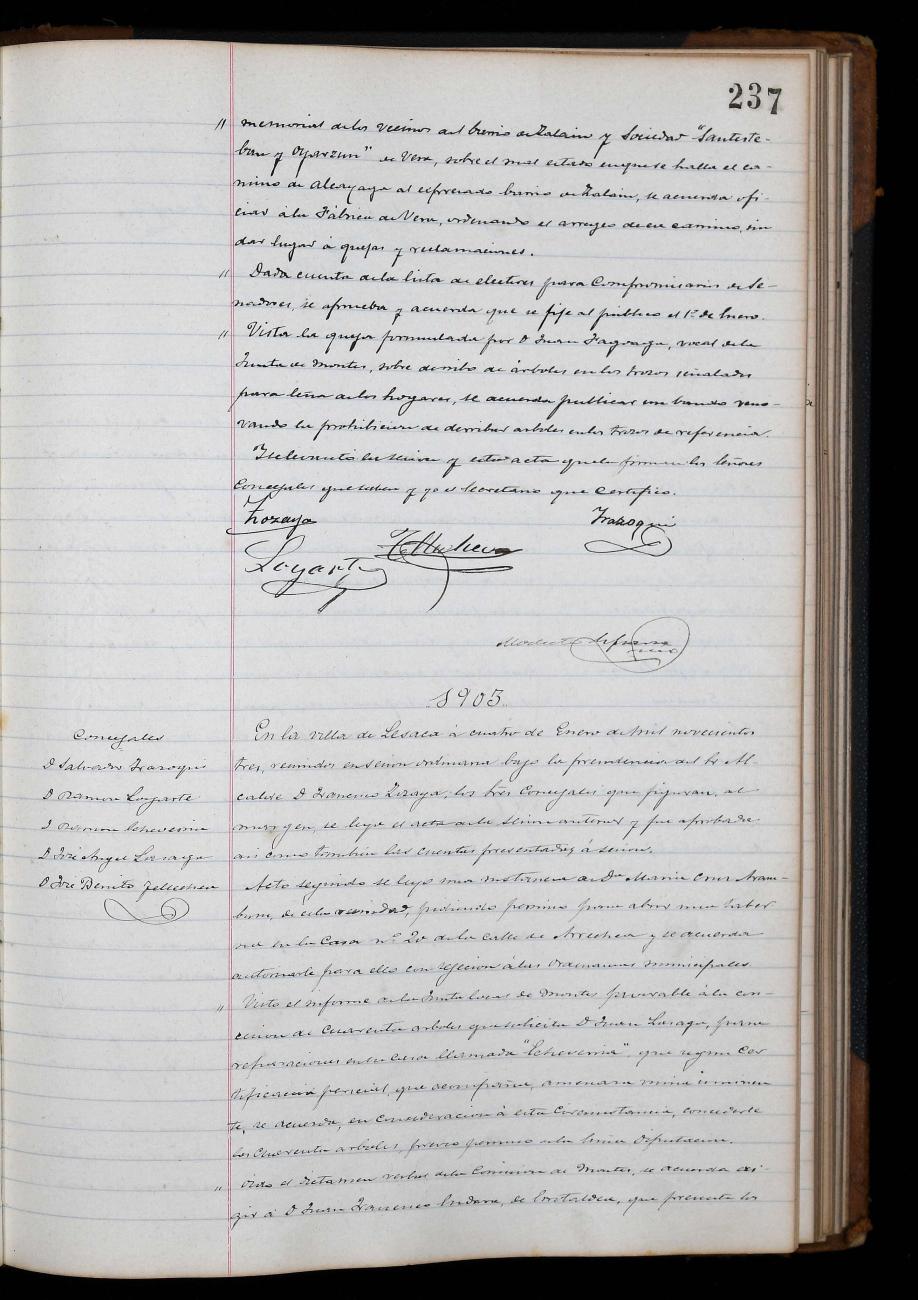 237
" memorial de los vecinos del barrio de Zalain y Sociedad "Santeste-
ban y Oyarzun" de Vera, sobre el mal estado en que se halla el ca-
mino de Alcayaga al espresado barrio de Zalain, se acuerda ofi-
ciar á la Fábrica de Vera, ordenando el arreglo de ese camino, sin
dar lugar á quejas y reclamaciones.
" Dada cuenta de la lista de electores para Compromisarios de Se-
nadores, se aprueba y acuerda que se fije al público el 1º de Enero.
" Vista la queja formulada por D Juan Fagoaga, vocal de la
Junta de Montes, sobre derribo de árboles en los trozos señalados
para leña de los hogares, se acuerda publicar un bando reno-
vando la prohibicion de derribar arboles en los trozos de referencia.
Y se levantó la sesion y esta acta que la firman los Señores
Concejales que saben y yo el Secretario que Certifico.
Zozaya Irazoqui
Logarte Tellechea
Modesto
1903
Concejales
D Salvador Irazoqui
D Ramon Logarte
D Ramon Echeverria
D José Angel Lasaga
D José Benito Tellechea
En la villa de Lesaca á cuatro de Enero de mil novecientos
tres, reunidos en sesion ordinaria bajo la presidencia del Sr Al-
calde D Francisco Zozaya, los tres Concejales que figuran, al
margen, se leyó el acta de la sesion anterior y fue aprobada
asi como tambien las cuentas presentadas á sesion.
Acto seguido se leyó una instancia de Dª Maria Cruz Aram-
buru, de esta vecindad, pidiendo permiso para abrir una taber
na en la Casa nº 20 de la calle de Arrechea y se acuerda
autorizarle para ello con sujecion á las ordenanzas municipales
" Visto el informe de la Junta local de Montes favorable á la con-
cesion de Cuarenta arboles que solicita D Juan Lasaga, para
reparaciones en su casa llamada "Echeverria", que segun Cer
tificacion pericial, que acompaña, amenaza ruina inminen
te, se acuerda, en Consideracion á esta Circunstancia, concederle
los Cuarenta arboles, previo permiso de la Excma Diputacion.
" Oido el dictamen verbal de la Comision de Montes, se acuerda exi-
gir á D Juan Francisco Endara, de, que presente los